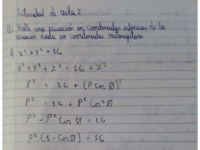 Actividad de aula 2
① Halle una ecuación en coordenadas esféricas de la ecuación dada en coordenadas rectangulares
a) x² + y² = 16
x² + y² + z² = 16 + z²
ρ² = 16 + (ρ Cos Ø)²
ρ² = 16 + ρ² Cos² Ø
ρ² - ρ² Cos² Ø = 16
ρ² (1 - Cos Ø) = 16